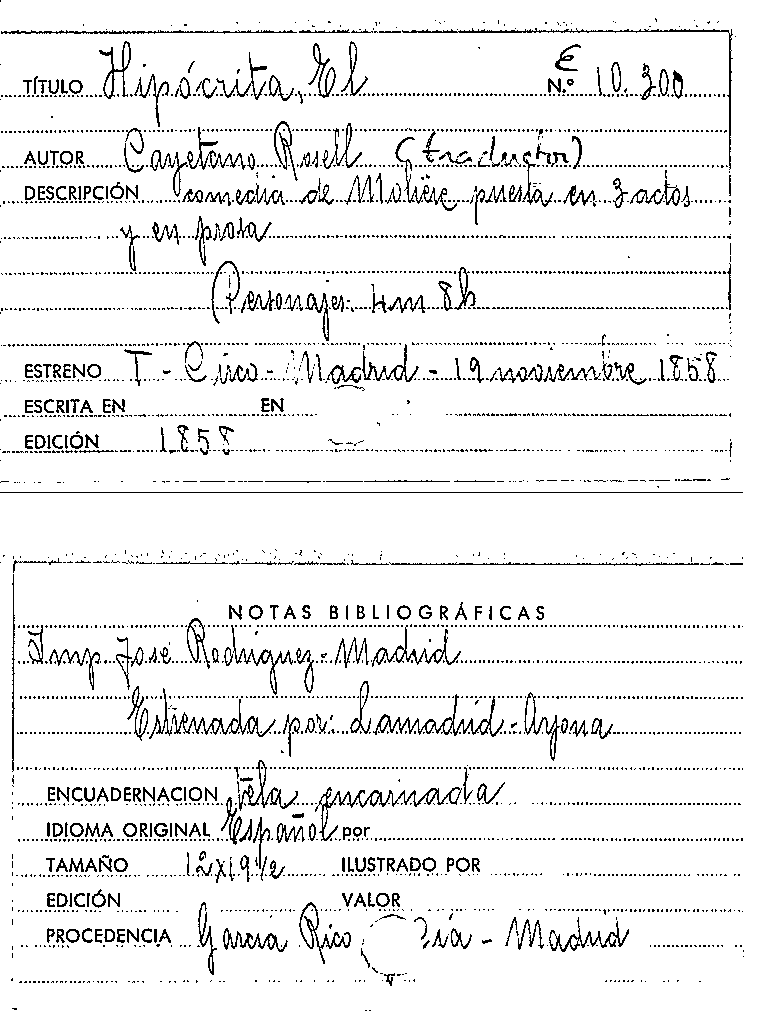 TÍTULO Hipócrita, El E N.º 10.300
AUTOR Cayetano Rosell (traductor)
DESCRIPCIÓN comedia de Molière puesta en 3 actos
y en prosa
(Personajes: 4m 8h
ESTRENO T - Circo - Madrid - 19 noviembre 1858
ESCRITA EN EN
EDICIÓN 1858
NOTAS BIBLIOGRÁFICAS
Imp. José Rodríguez - Madrid
Estrenada por: Lamadrid - Arjona
ENCUADERNACION tela encarnada
IDIOMA ORIGINAL Español por
TAMAÑO 12x19 1/2 ILUSTRADO POR
EDICIÓN VALOR
PROCEDENCIA García Rico - Madrid